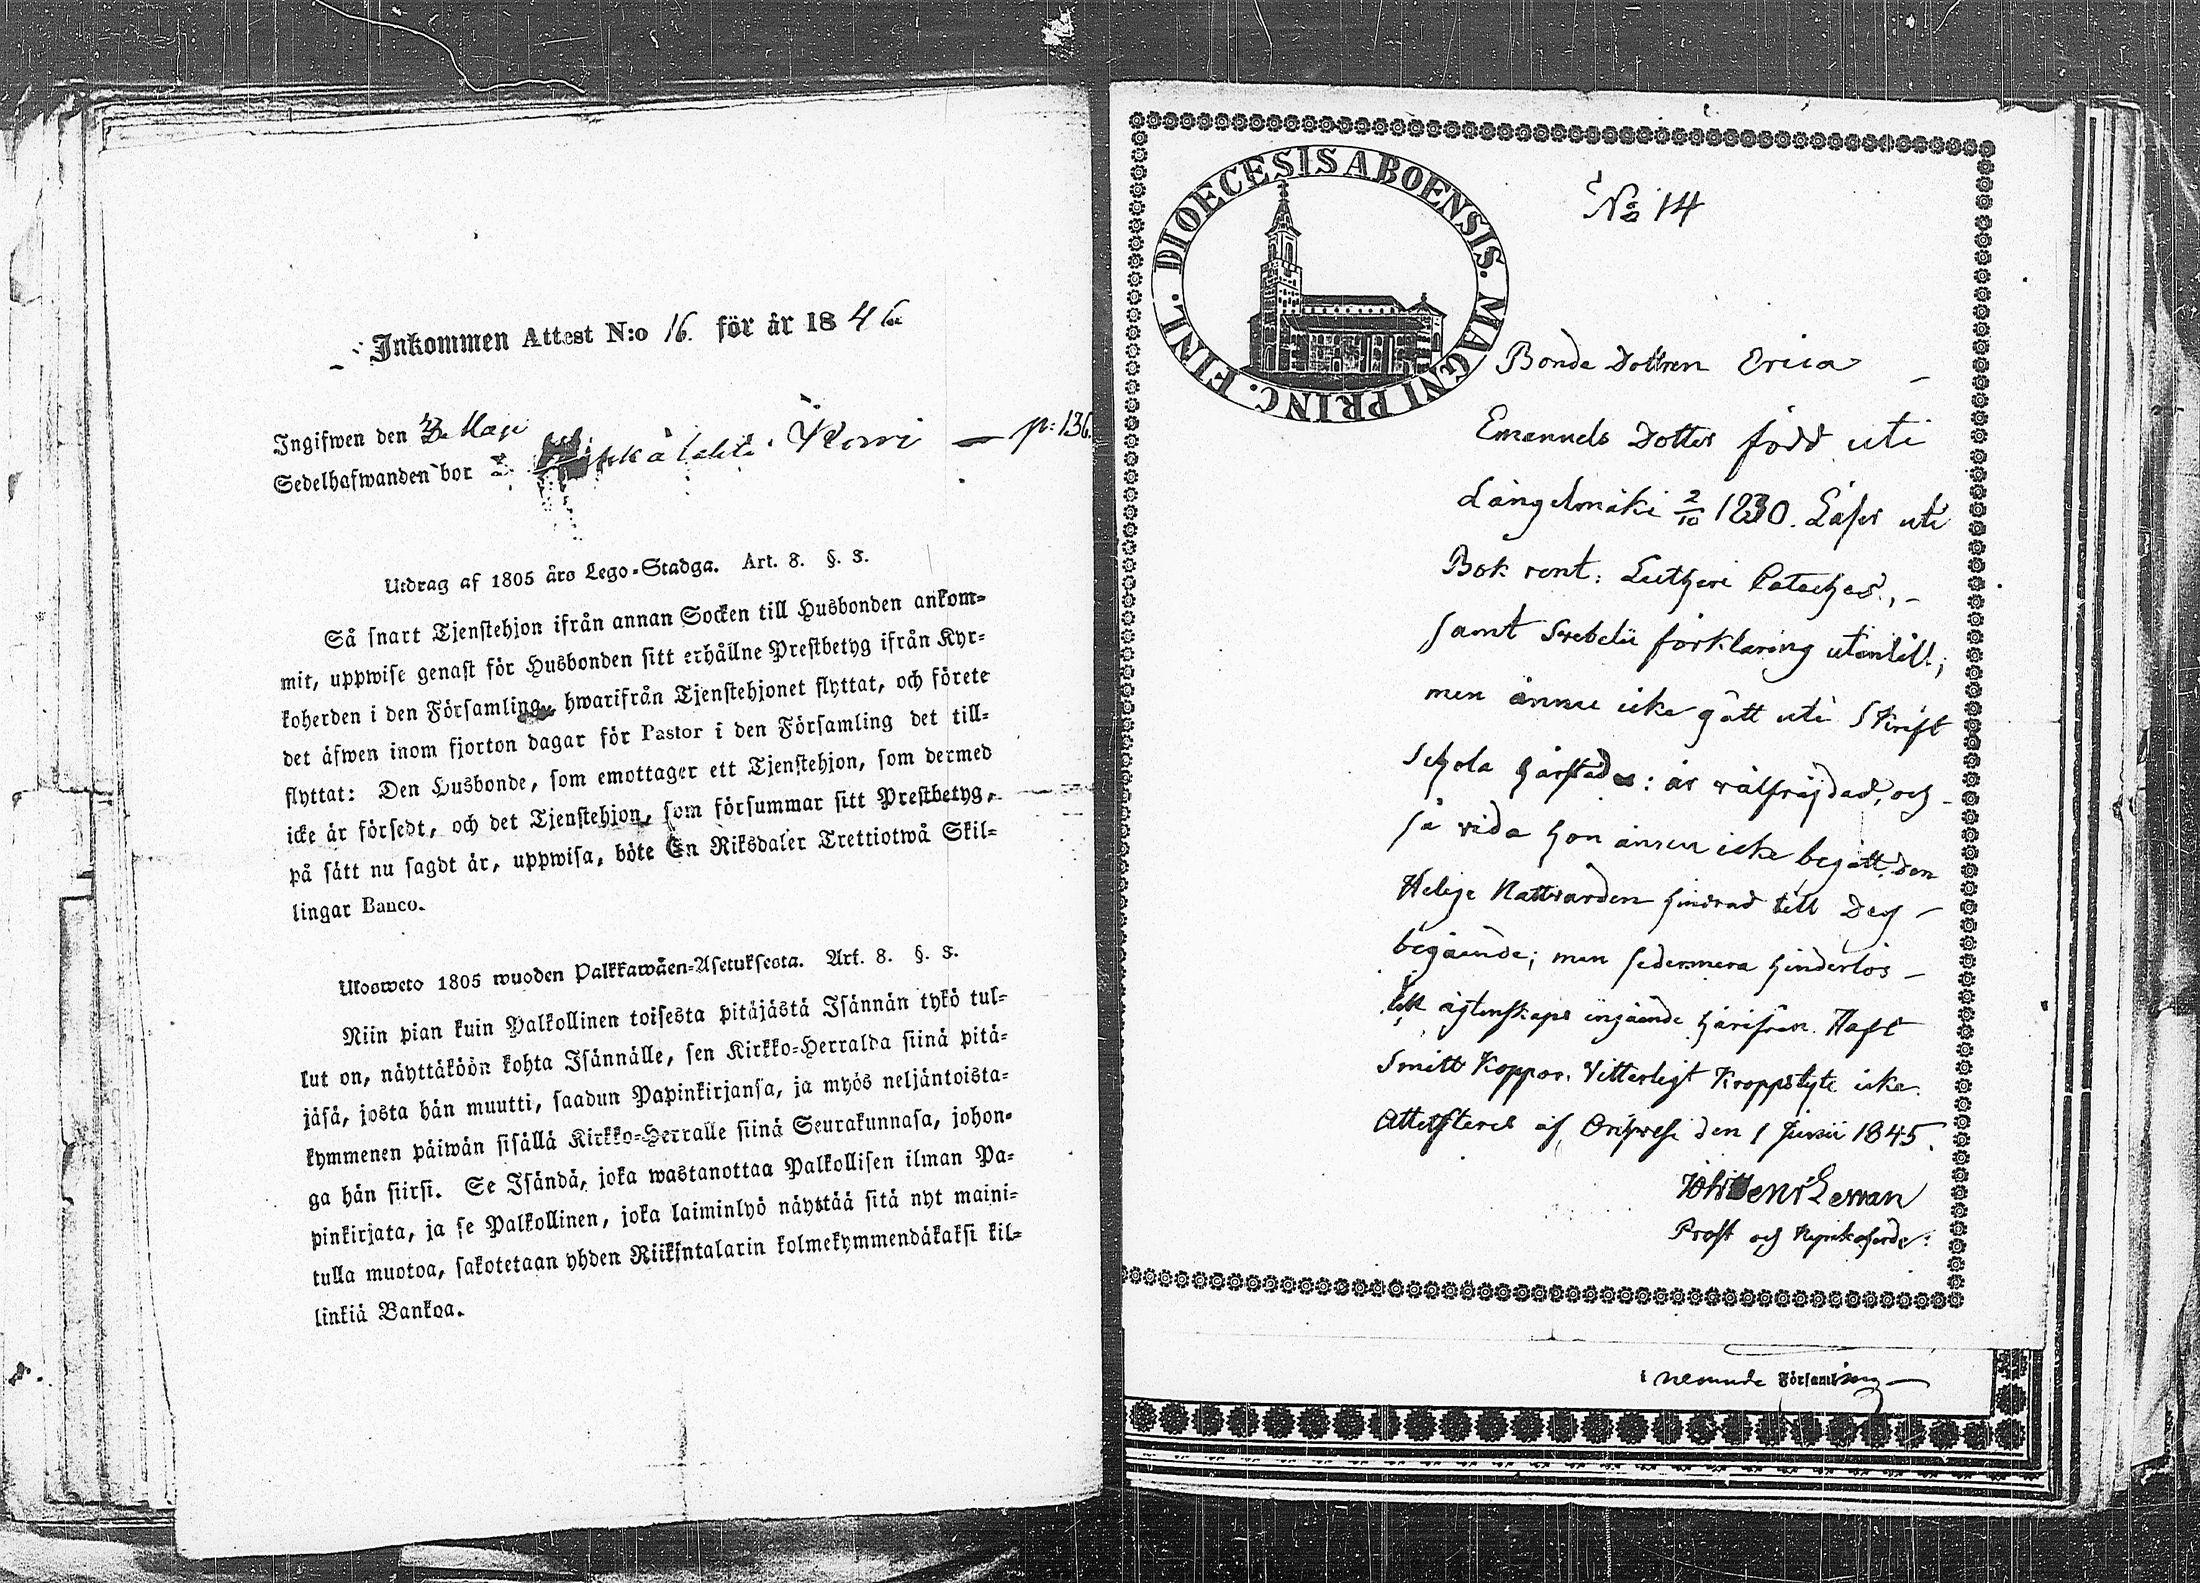 Inkommen Attest N:o 16. för år 1846
Ingifwen den Maji
Sedelhafwanden bor i p: 136.
Utdrag af 1805 års Lego-Stadga. Art. 8. §. 3.
Så snart Tjenstehjon ifrån annan Socken till Husbonden ankom-
mit, uppwise genast för Husbonden sitt erhållne Prestbetyg ifrån Kyr-
koherden i den Församling, hwarifrån Tjenstehjonet flyttat, och förete
det äfwen inom fjorton dagar för Pastor i den Församling det till-
flyttat: Den Husbonde, som emottager ett Tjenstehjon, som dermed
icke är försedt, och det Tjenstehjon, som försummar sitt Prestbetyg,
på sätt nu sagdt är, uppwisa, böte En Riksdaler Trettiotwå Skil-
lingar Banco.
Ulosweto 1805 wuoden Palkkawäen-Asetuksesta. Art. 8. §. 3.
Niin pian kuin Palkollinen toisesta pitäjästä Isännän tykö tul-
lut on, näyttäköön kohta Isännälle, sen Kirkko-Herralda siinä pitä-
jäsä, josta hän muutti, saadun Papinkirjansa, ja myös neljäntoista-
kymmenen päiwän sisällä Kirkko-Herralle siinä Seurakunnasa, johon-
ga hän siirsi. Se Isändä, joka wastanottaa Palkollisen ilman Pa-
pinkirjata, ja se Palkollinen, joka laiminlyö näyttää sitä nyt maini-
tulla muotoa, sakotetaan yhden Riikintalarin kolmekymmendäkaksi kil-
linkiä Bankoa.
DIOECESIS ABOENSIS. MAGNI PRINC. FINL.
No 14
Bonde Dottren Erica
Emanuels Dotter född uti
Längelmäki 2/10 1830. Läser uti
Bok rent: Lutheri Cateches.,
samt Svebelii förklaring utantill;
men ännu icke gått uti Skrift
Schola härstädes: är välfräjdad, och
så vida hon ännu icke begått den
Helige Nattvarden hindrad till Dess
begående; men sedermera hinderlös
till ägtenskaps ingående härifrån. Haft
Smitt Koppor. Vitterligt Kroppslyte icke.
Attesteres af Orihvesi den 1 Junii 1845.
Prost och Kyrkoherde.
i nemnde Församling